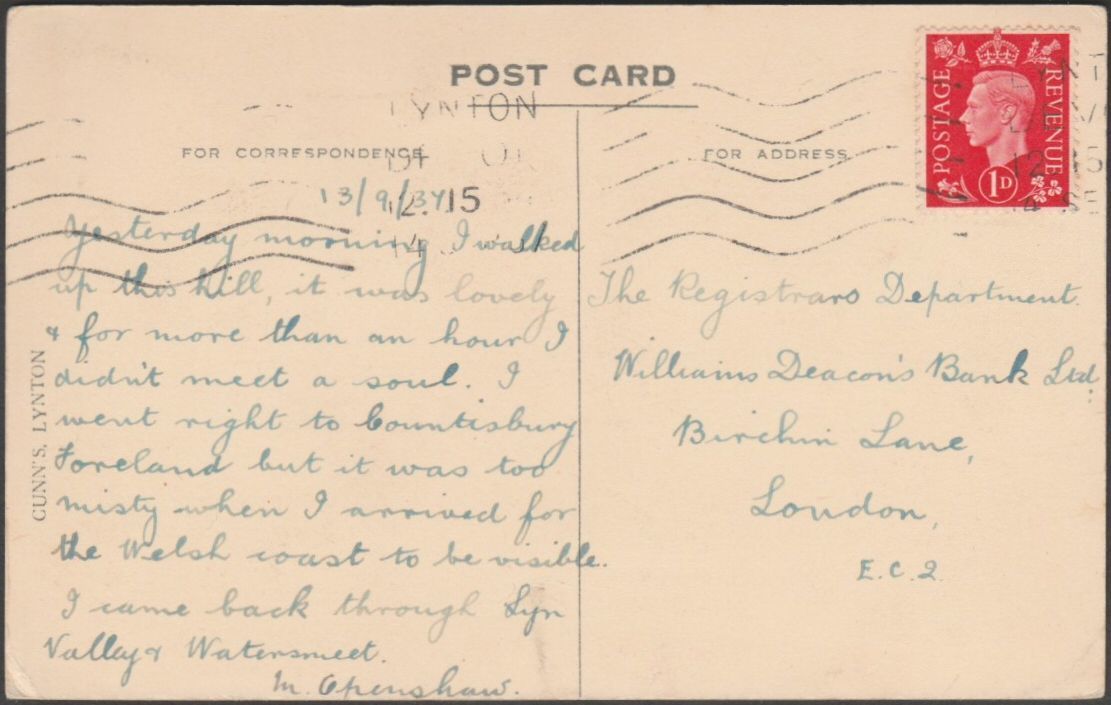 POST CARD
LYNTON
FOR CORRESPONDENCE
13/9/37
12.15
14
Yesterday morning I walked
up this hill, it was lovely
& for more than an hour I
didn't meet a soul. I
went right to Countisbury
Foreland but it was too
misty when I arrived for
the Welsh coast to be visible.
I came back through Lyn
Valley & Watersmeet.
M. Openshaw.
GUNN'S, LYNTON
FOR ADDRESS
POSTAGE
REVENUE
1D
LYNT
12.15
14 SE
The Registrars Department.
Williams Deacon's Bank Ltd:
Birchin Lane,
London,
E.C.2.